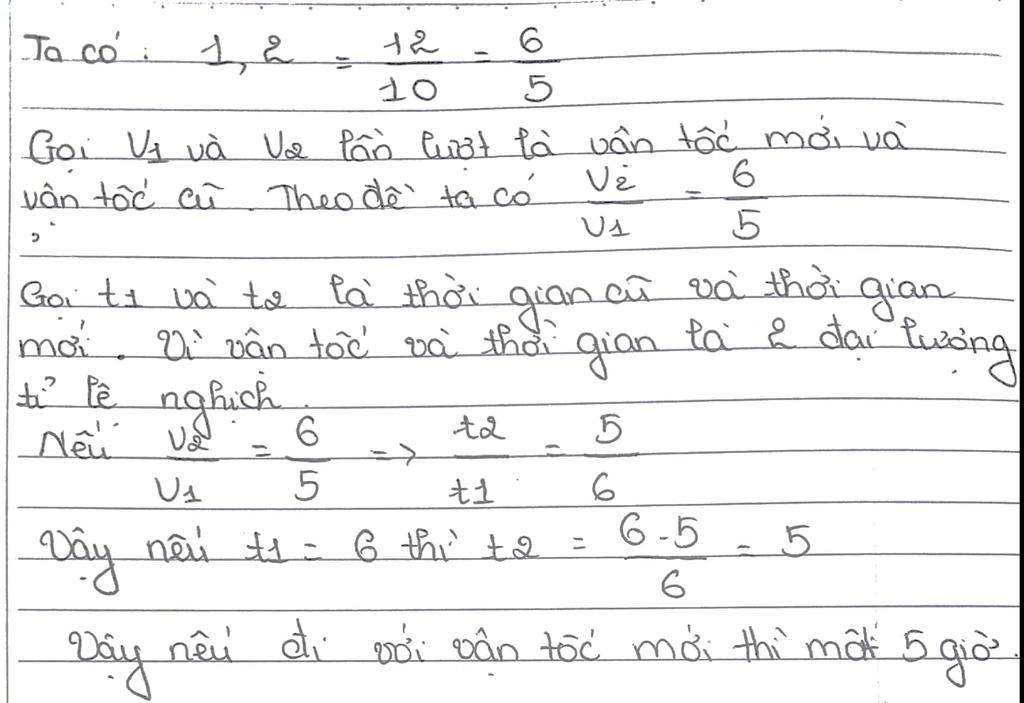 Ta có: 1,2 = 12/10 = 6/5
Gọi V1 và V2 lần lượt là vận tốc mới và
vận tốc cũ. Theo đề ta có V2/V1 = 6/5
Gọi t1 và t2 là thời gian cũ và thời gian
mới. Vì vận tốc và thời gian là 2 đại lượng
tỉ lệ nghịch.
Nếu V2/V1 = 6/5 => t2/t1 = 5/6
Vậy nếu t1 = 6 thì t2 = 6.5/6 = 5
Vậy nếu đi với vận tốc mới thì mất 5 giờ.